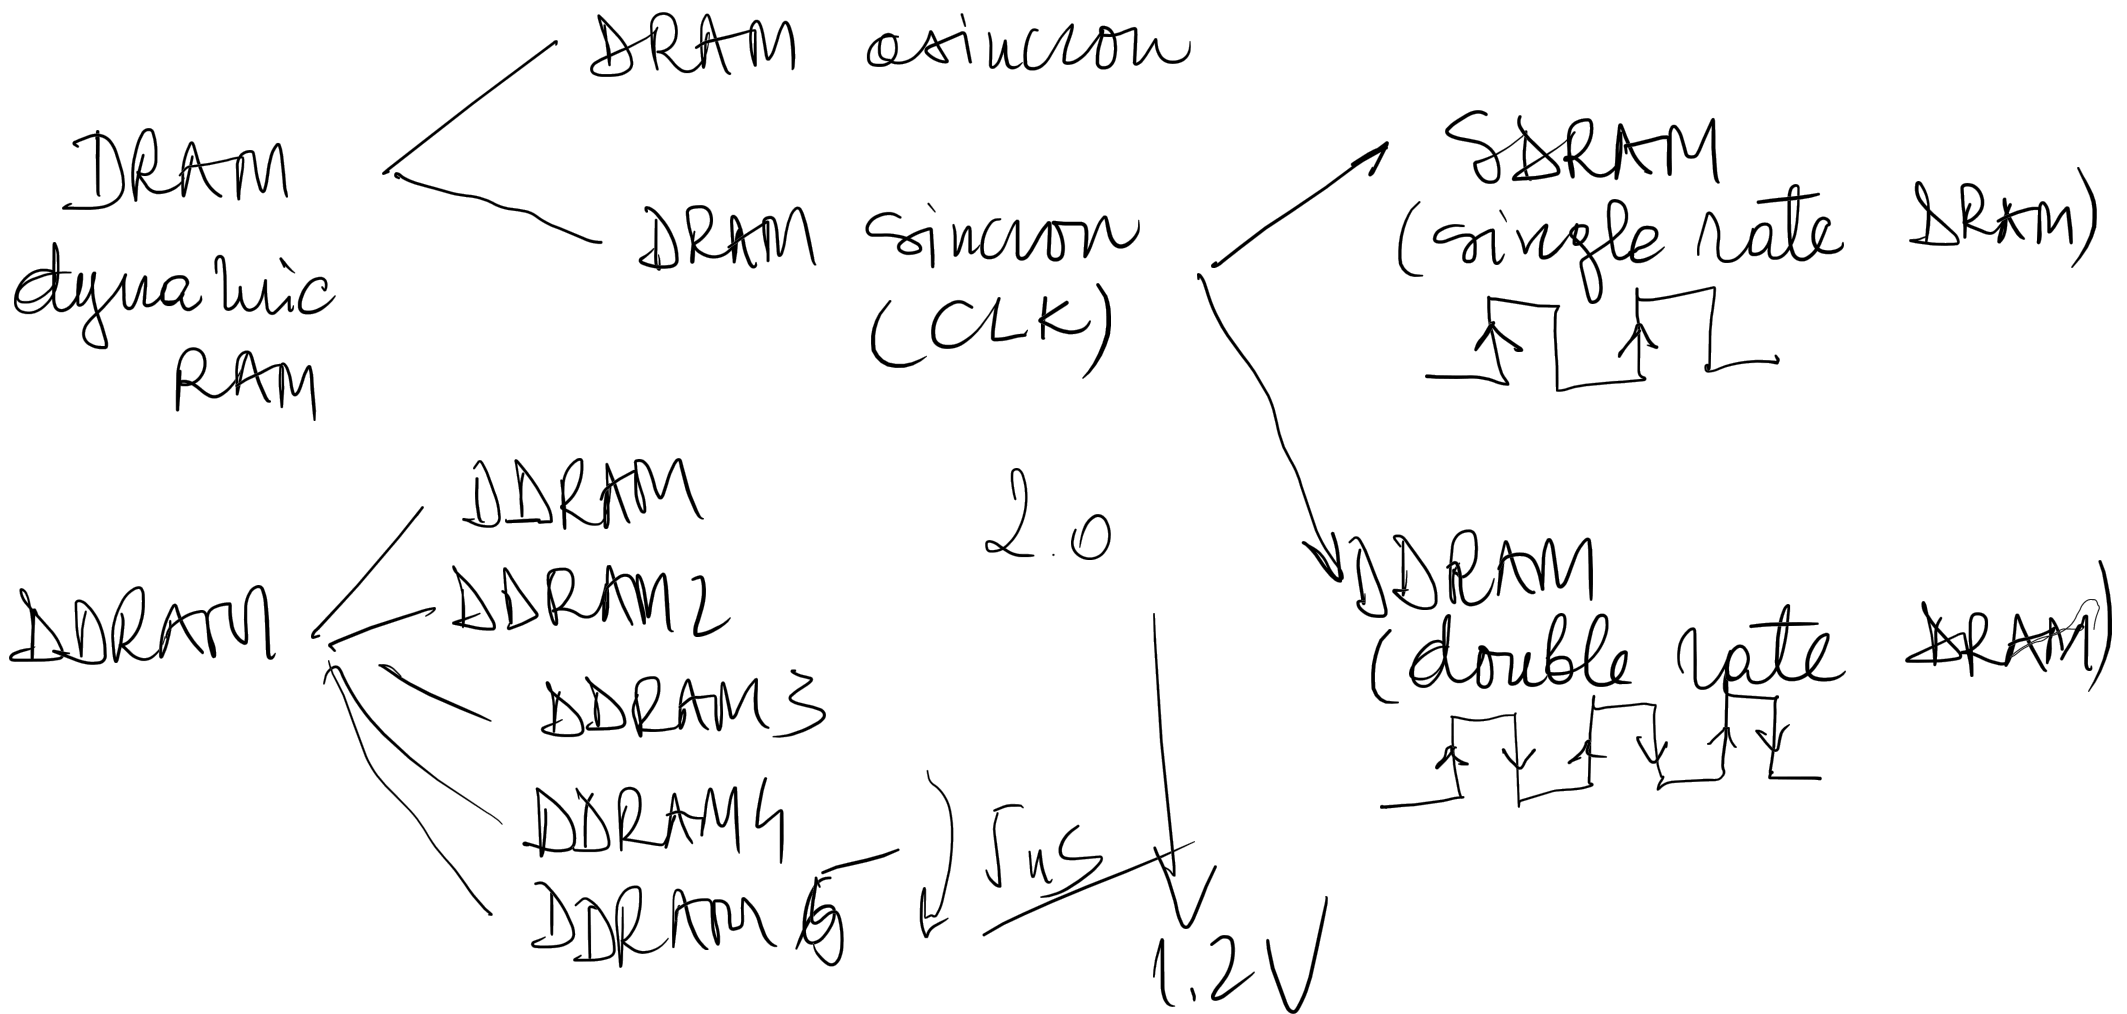 DRAM asincron
DRAM
dynamic
RAM
DRAM sincron
(CLK)
SDRAM
(single rate DRAM)
DDRAM
(double rate DRAM)
DDRAM
DDRAM
DDRAM2
DDRAM3
DDRAM4
DDRAM5
5ns
2.0
1.2V